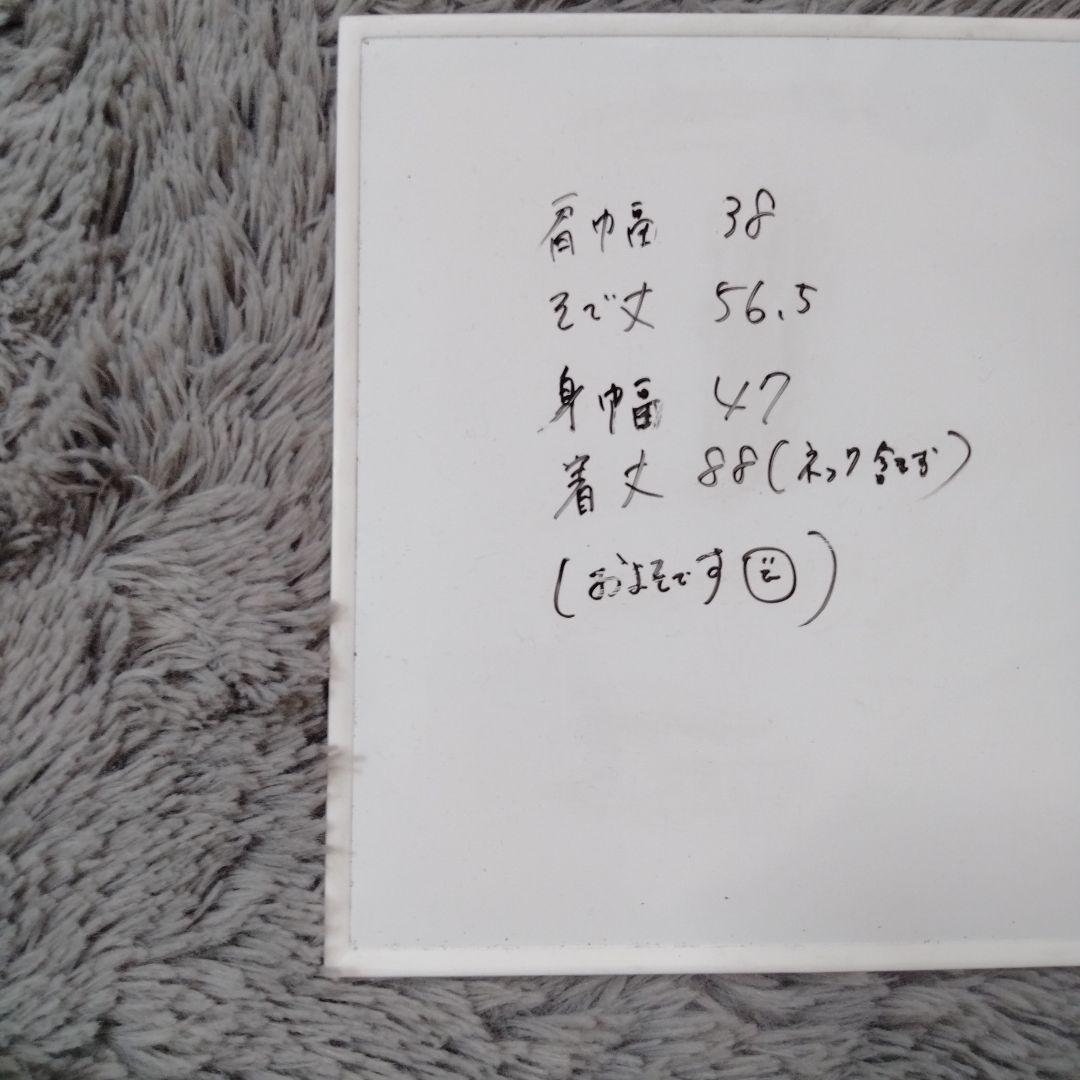 肩巾幅 38
そで丈 56.5
身幅 47
着丈 88(ネック含まず)
(およそです)